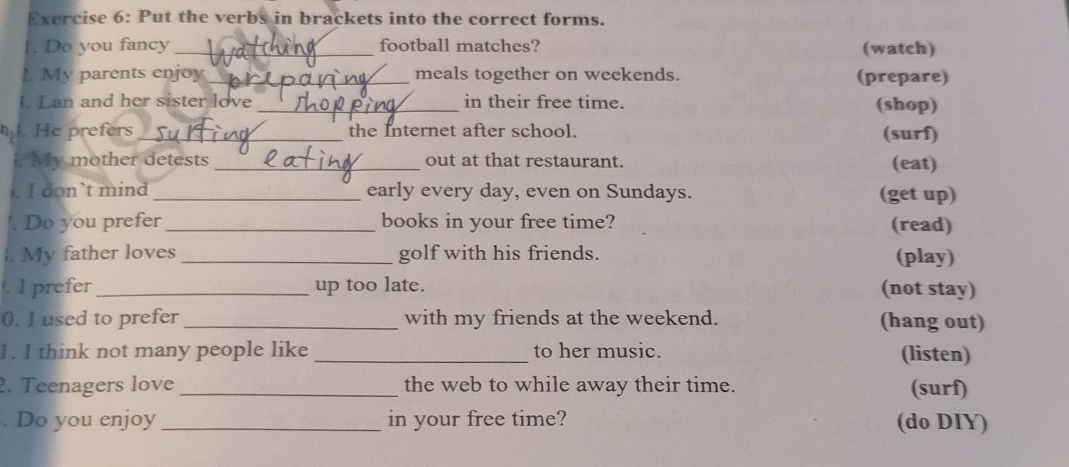 Exercise 6: Put the verbs in brackets into the correct forms.
1. Do you fancy watching football matches? (watch)
2. My parents enjoy preparing meals together on weekends. (prepare)
3. Lan and her sister love shopping in their free time. (shop)
4. He prefers surfing the Internet after school. (surf)
5. My mother detests eating out at that restaurant. (eat)
. I don't mind ____________ early every day, even on Sundays. (get up)
. Do you prefer ____________ books in your free time? (read)
. My father loves ____________ golf with his friends. (play)
. I prefer ____________ up too late. (not stay)
0. I used to prefer ____________ with my friends at the weekend. (hang out)
1. I think not many people like ____________ to her music. (listen)
2. Teenagers love ____________ the web to while away their time. (surf)
. Do you enjoy ____________ in your free time? (do DIY)